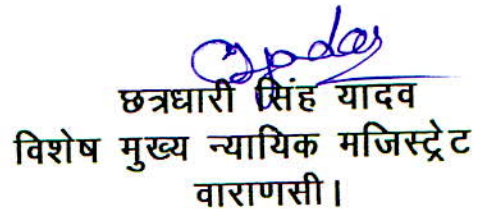 छत्रधारी सिंह यादव
विशेष मुख्य न्यायिक मजिस्ट्रेट
वाराणसी।